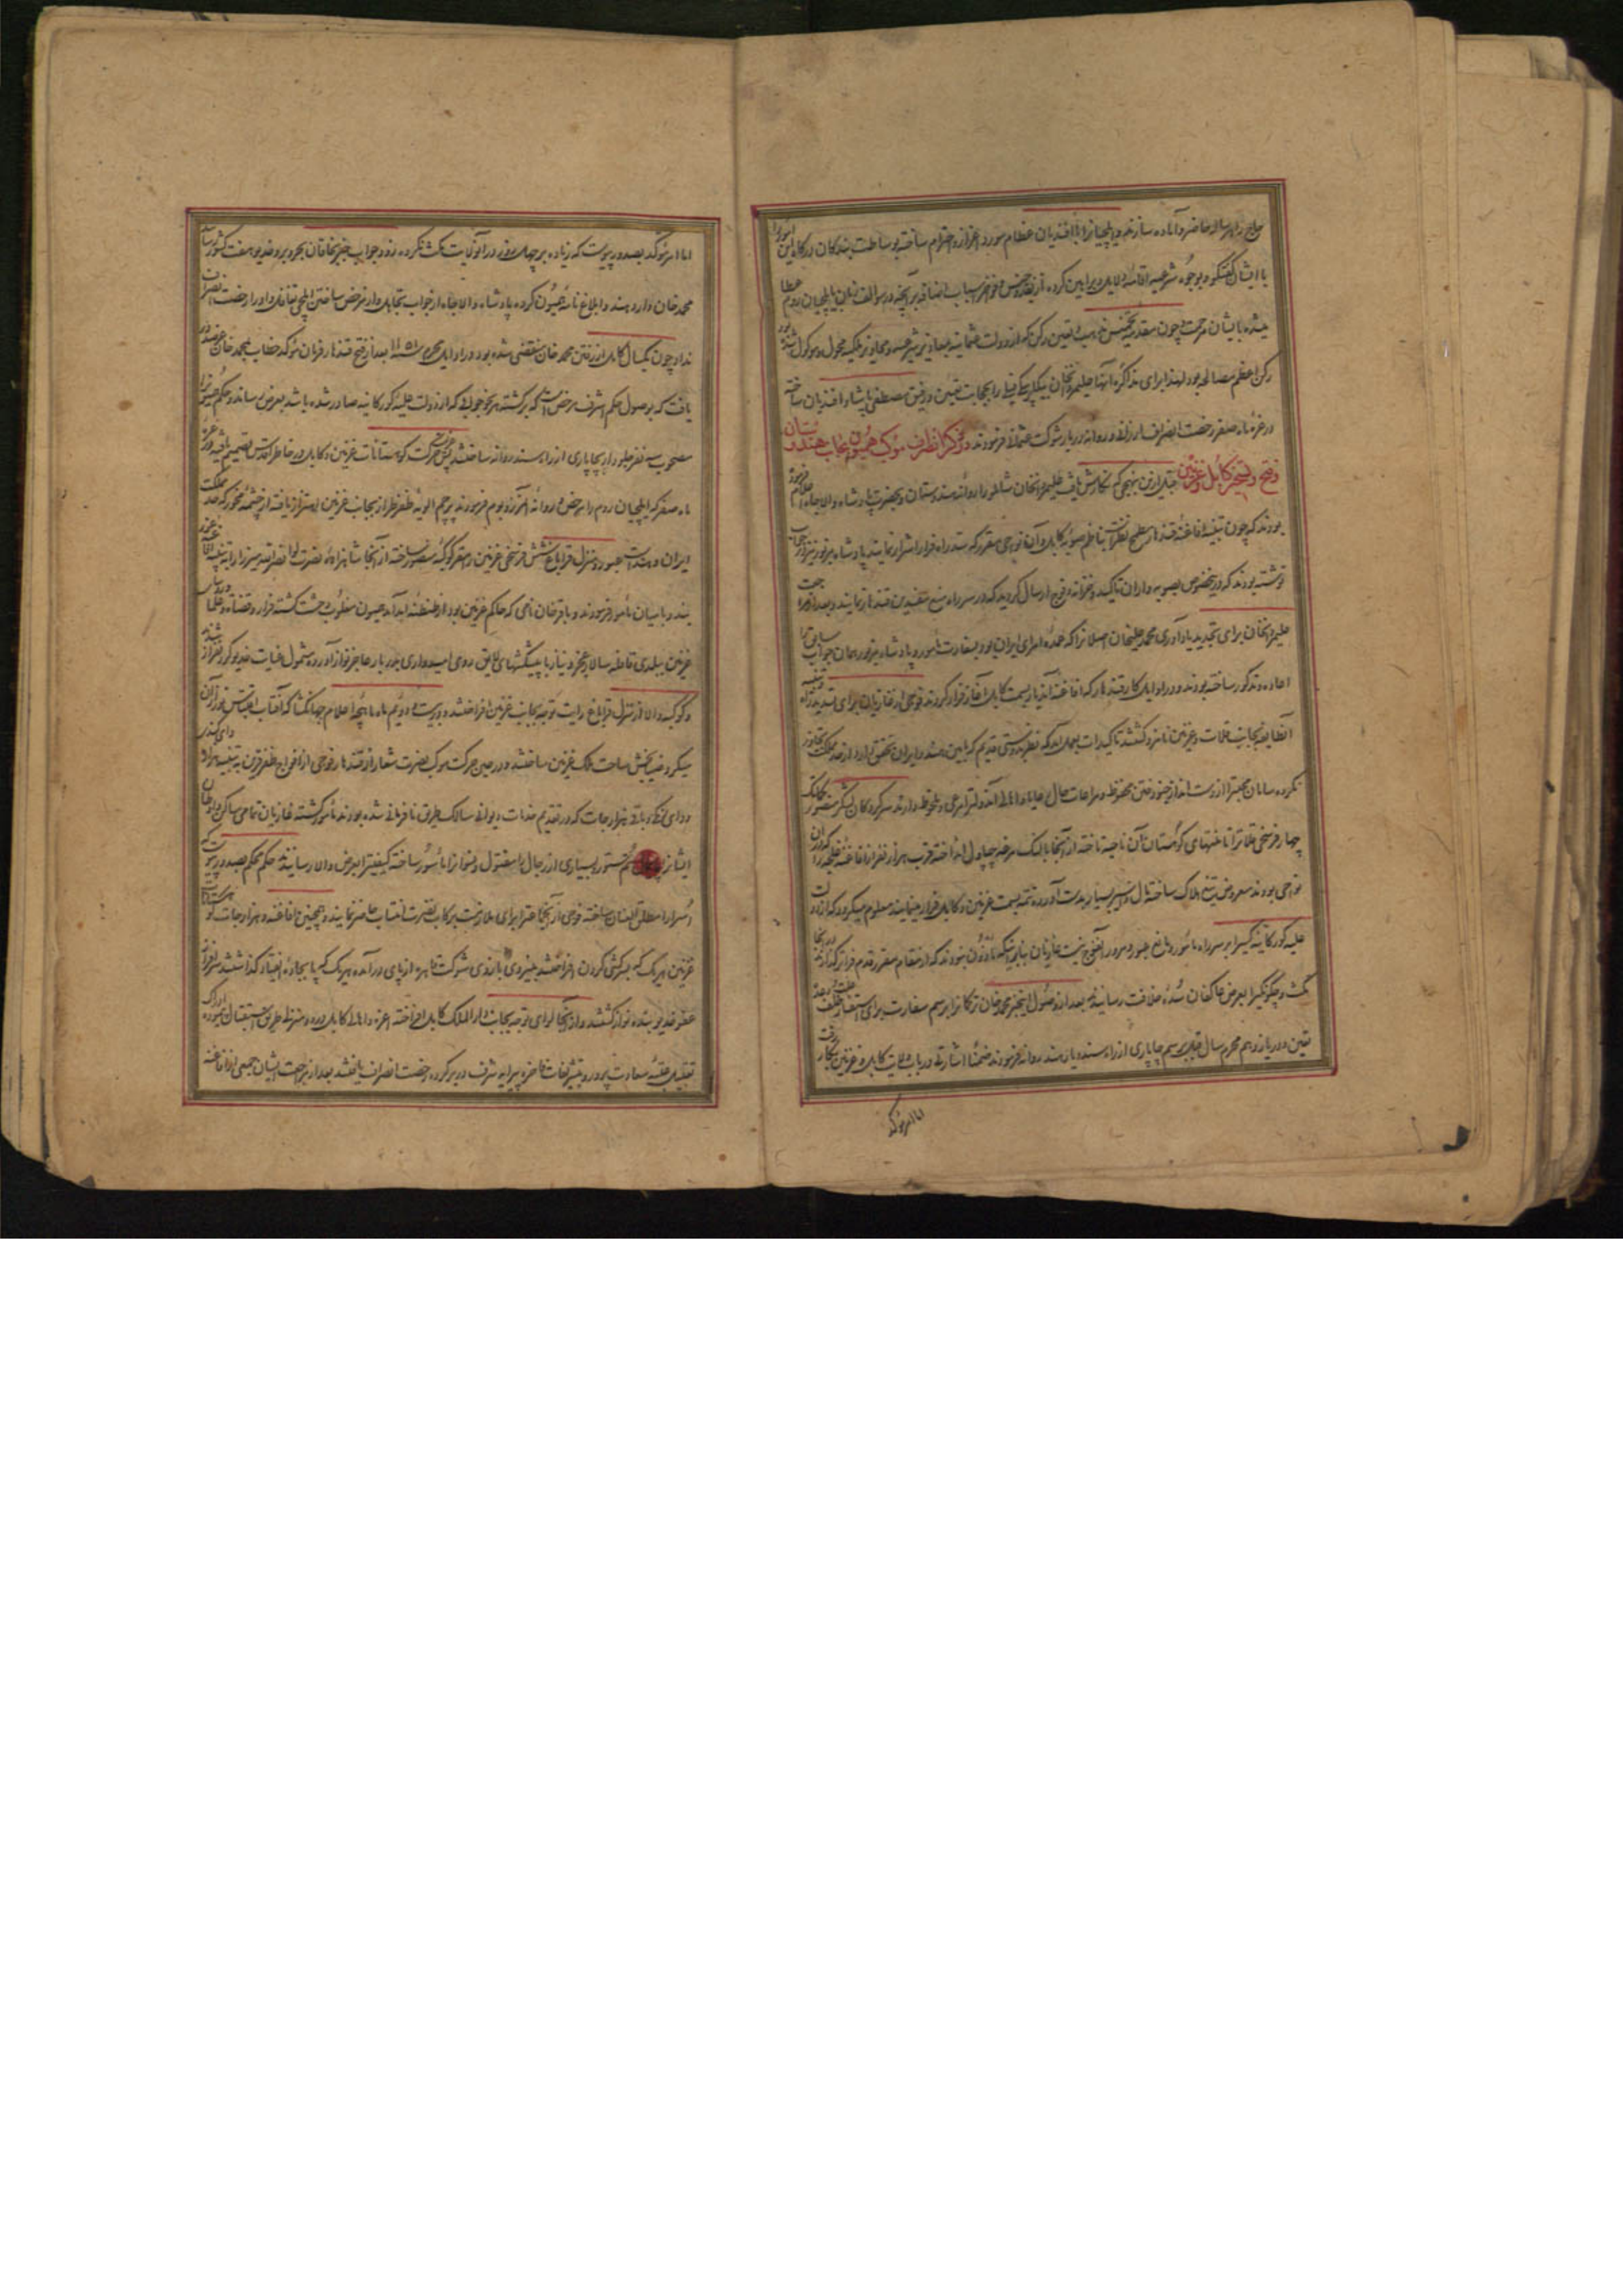 حاج را بهر ساله حاضر و آماده سازند و ایلچیانرا با افندیان عظام مورد اعزاز و احترام ساخته بوساطت بندگان درگاه این امور را
با ایشان گفتگو و بوجوه شرعیه اقامه دلایل و براهین کرده از نقد و جنس و خز و سایر اسباب اضافه بر آنچه در سوالف زمان بایلچیان روم عطا
میشد بایشان مرحمت و چون مقدمه تخمیس مذهب و تعیین رکن که از دولت عثمانیه بمعاذیر شرعیه و محاذیر ملکیه محول و موکول شده بود
رکن اعظم مصالحه بود لهذا برای مذاکره آنها علیمردانخان بیگلربیگی فیلی را بایلچی گری تعیین و رفیق مصطفی پاشا و افندیان ساخته
در غره ماه صفر رخصت انصراف ارزانی و روانه دربار شوکت عثمانی فرمودند ذکر انصراف موکب همیون بجانب هندوستان
و فتح و تسخیر کابل و غزنین قبل ازین بنهجی که نگارش یافت علیمردانخان شاملو را روانه هندوستان و بحضرت پادشاه والاجاه اعلام فرموده
بودند که چون تنبیه افاغنه قندهار مطمح نظرست بناظم صوبه کابل و آن نواحی مقرر که سد راه فرار اشرار نمایند پادشاه مزبور نیز در جواب
نوشته بودند که درینخصوص بصوبه داران تاکید و خزانه و فوج ارسال گردید که در سر راه منع متمردین قندهار نمایند و بعد از مراجعت
علیمردانخان برای تجدید یادآوری محمد علیخان اصلانرا که عمده امرای ایران بود بسفارت مامور و پادشاه مزبور همان جواب سابق را
اعاده و مذکور ساخته بودند و در اوایل کار قندهار که افاغنه آن دیار بسمت کابل آغاز فرار کردند فوجی از غازیان برای تسدید راه و تنبیه
آنطایفه بجانب قلات و غزنین نامزد گشتند تاکیدات بعمل آمد که نظر بدوستی قدیم که مابین هند و ایران تحقق دارد از حد مملکت تجاوز
نکرده سامان محبت را از دست انداز جنود فتن محفوظ و مراعات حال رعایا و اهالی آندولت را مرعی و ملحوظ دارند سرکردگان لشکر منصور تا بمکان
چهار فرسخی قلات را تا منتهای کوهستان آن ناحیه تاخته از آنجا بالنک مرغه چپاول انداخته قریب هزار نفر از افاغنه غلجه را که در آن
نواحی بودند معروض تیغ هلاک ساخته مال و اسیر بسیار بدست آورده تتمه بسمت غزنین و کابل فرار مینمایند معلوم میگردد که از دولت
علیه گورکانیه کسی بر سر راه مامور و مانع عبور و مرور آنفوج نیست غازیان بنابر اینکه ماذون نبودند که از مقام مقرر قدم فراتر گذارند در آنجا
مکث و چگونگی را بعرض عاکفان سده خلافت رسانیده بعد از وصول اینخبر محمد خان ترکمانرا برسم سفارت برای استفسار علت خلف وعده
تعیین و در یازدهم محرم سال قبل برسم چاپاری از راه سند و یا هند روانه فرمودند ضمنا اشارتی در باب ولایت کابل و غزنین بنگارش رفت
اما امر موکد
اما امر موکد بصدور پیوست که زیاده بر چهل روز در آنولایت مکث نکرده زود جواب خبر بخاقان بحر و بر و خدیو هفت کشور رساند
محمد خان وارد هند و ابلاغ نامه همیون کرده پادشاه والاجاه از جواب تجاهل و از مرخص ساختن ایلچی تغافل و او را رخصت انصراف
نداد چون یکسال کامل از رفتن محمد خان منقضی شده بود در اوایل محرم سنه ۱۱۵۱ بعد از فتح قندهار فرمان موکد خطاب بمحمد خان عز صدور
یافت که بوصول حکم اشرف مرخص است که برگشته بهر نحو جوابی که از دولت علیه گورکانیه صادر شده باشد بعرض رساند و حکم همیون را
مصحوب سه نفر جلودار بچاپاری از راه سند روانه ساختند چون حرکت کوهستانات غزنین و کابل در خاطر اقدس تصمیم یافته بود در غره
ماه صفر که ایلچیان روم را مرخص و روانه آنمرز و بوم فرمودند پرچم الویه ظفر طراز بجانب غزنین اهتزاز یافته از چشمه مخور که حد مملکت
ایران و هندست عبور و منزل قراباغ شش فرسخی غزنین را مقر کوکبه منصور ساخته از آنجا شاهزاده نصرت لوا نصرالله میرزا را بتنبیه افاغنه غوربند
بند و بامیان مامور فرمودند و باقرخان نامی که حاکم غزنین بود از طنطنه آمد آمد همیون مغلوب وحشت گشته فرار و قضات و علما و رؤسای
غزنین ببلدی قافله سالار عجز و نیاز با پیشکشهای لایق روی امیدواری بدربار عاجز نواز آورده مشمول عنایت خدیو گردن فراز شدند
و کوکبه والا از منزل قراباغ رایت توجه بجانب غزنین افراختند و در بیست و دویم ماه ماهچه اعلام جهانگشا که آفتاب اقتباس نور از آن
میکرد ضیابخش ساحت ملک غزنین ساختند و در حین حرکت موکب نصرت شعار از قندهار فوجی از افواج ظفر قرین بتنبیه هزاره دای کندی
و دای زنگی و باقی هزارجات که در تقدیم خدمات دیوانی سالک طریق نافرمانی شده بودند مامور گشته غازیان تمامی مساکن و اوطان
ایشانرا پامال سم ستور و بسیاری از رجال را مقتول و نسوانرا ماسور ساخته کیفیت را بعرض والا رسانیدند حکم محکم بصدور پیوست که
اسرا را مطلق العنان ساخته فوجی از آنجماعت را برای ملازمت برکاب نصرت انتساب حاضر نمایند و همچنین افاغنه و هزارجات کوهستانات
غزنین هر یک که بسرکشی گردن افراختند بنیروی بازوی شوکت قاهره از پای درآمده هر یک که پا بجاده انقیاد گذاشتند سرافراز
عفو خدیو بنده نواز گشتند و از آنجا لوای توجه بجانب دارالملک کابل افراخته اعزه و اهالی کابل در دو منزلی طریق استقبال پیموده ادراک
تقبیل عتبه سعادت پرور و بتشریفات فاخره پیرایه شرف در بر کرده رخصت انصراف یافتند بعد از مراجعت ایشان جمعی از افاغنه